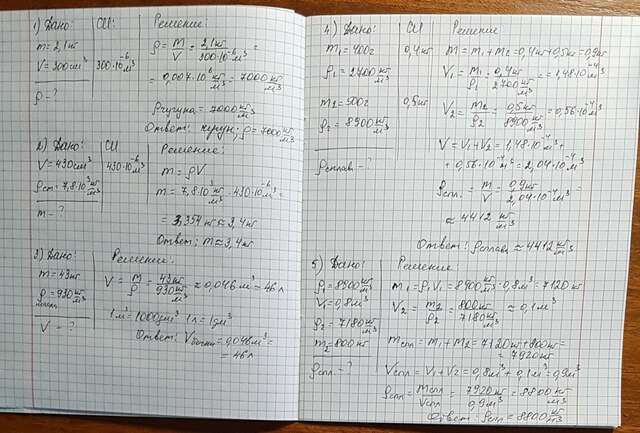 1) Дано:
m = 2,1 кг
V = 300 см³
ρ = ?
СИ:
300·10⁻⁶ м³
Решение:
ρ = m/V = 2,1 кг / 300·10⁻⁶ м³ =
= 0,007·10⁶ кг/м³ = 7000 кг/м³
ρ чугуна = 7000 кг/м³
Ответ: чугун; ρ = 7000 кг/м³
2) Дано:
V = 430 см³
ρст = 7,8·10³ кг/м³
m - ?
СИ
430·10⁻⁶ м³
Решение:
m = ρV
m = 7,8·10³ кг/м³ · 430·10⁻⁶ =
= 3,354 кг ≈ 3,4 кг
Ответ: m ≈ 3,4 кг
3) Дано:
m = 43 кг
ρ = 930 кг/м³
V - ?
Решение:
V = m/ρ = 43 кг / 930 кг/м³ ≈ 0,046 м³ = 46 л
1 м³ = 1000 дм³ 1 л = 1 дм³
Ответ: Vбочки = 0,046 м³ =
= 46 л
4) Дано:
m₁ = 400 г
ρ₁ = 2700 кг/м³
m₂ = 500 г
ρ₂ = 8900 кг/м³
ρсплав - ?
СИ
0,4 кг
0,5 кг
Решение
m = m₁ + m₂ = 0,4 кг + 0,5 кг = 0,9 кг
V₁ = m₁/ρ₁ = 0,4 кг / 2700 кг/м³ = = 1,48·10⁻⁴ м³
V₂ = m₂/ρ₂ = 0,5 кг / 8900 кг/м³ = 0,56·10⁻⁴ м³
V = V₁ + V₂ = 1,48·10⁻⁴ м³ +
+ 0,56·10⁻⁴ м³ = 2,04·10⁻⁴ м³
ρспл. = m/V = 0,9 кг / 2,04·10⁻⁴ м³ =
≈ 4412 кг/м³
Ответ: ρсплава ≈ 4412 кг/м³
5) Дано:
ρ₁ = 8900 кг/м³
V₁ = 0,8 м³
ρ₂ = 7180 кг/м³
m₂ = 800 кг
ρспл - ?
Решение
m₁ = ρ₁V₁ = 8900 кг/м³ · 0,8 м³ = 7120 кг
V₂ = m₂/ρ₂ = 800 кг / 7180 кг/м³ ≈ 0,1 м³
mспл = m₁ + m₂ = 7120 кг + 800 кг =
= 7920 кг
Vспл = V₁ + V₂ = 0,8 м³ + 0,1 м³ = 0,9 м³
ρспл = mспл/Vспл = 7920 кг / 0,9 м³ = 8800 кг/м³
Ответ: ρспл = 8800 кг/м³